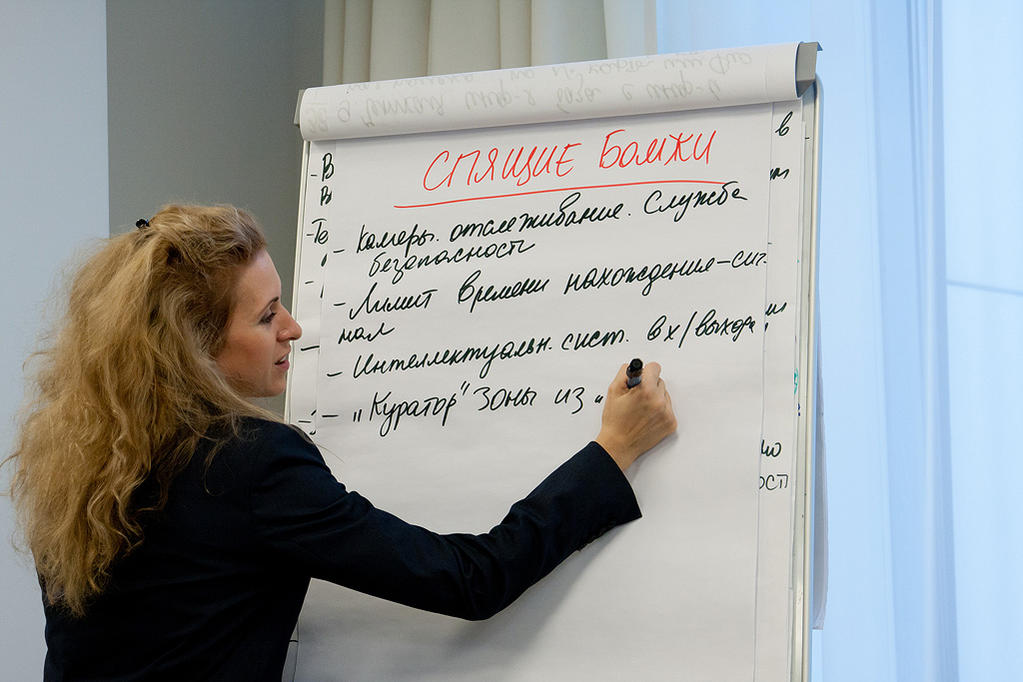 СПЯЩИЕ БОМЖИ
- Камеры. отслеживание. Служба
безопасности
- Лимит времени нахождения-сиг-
нал
- Интеллектуальн. сист. вх/выхода
- „Куратор" зоны из „